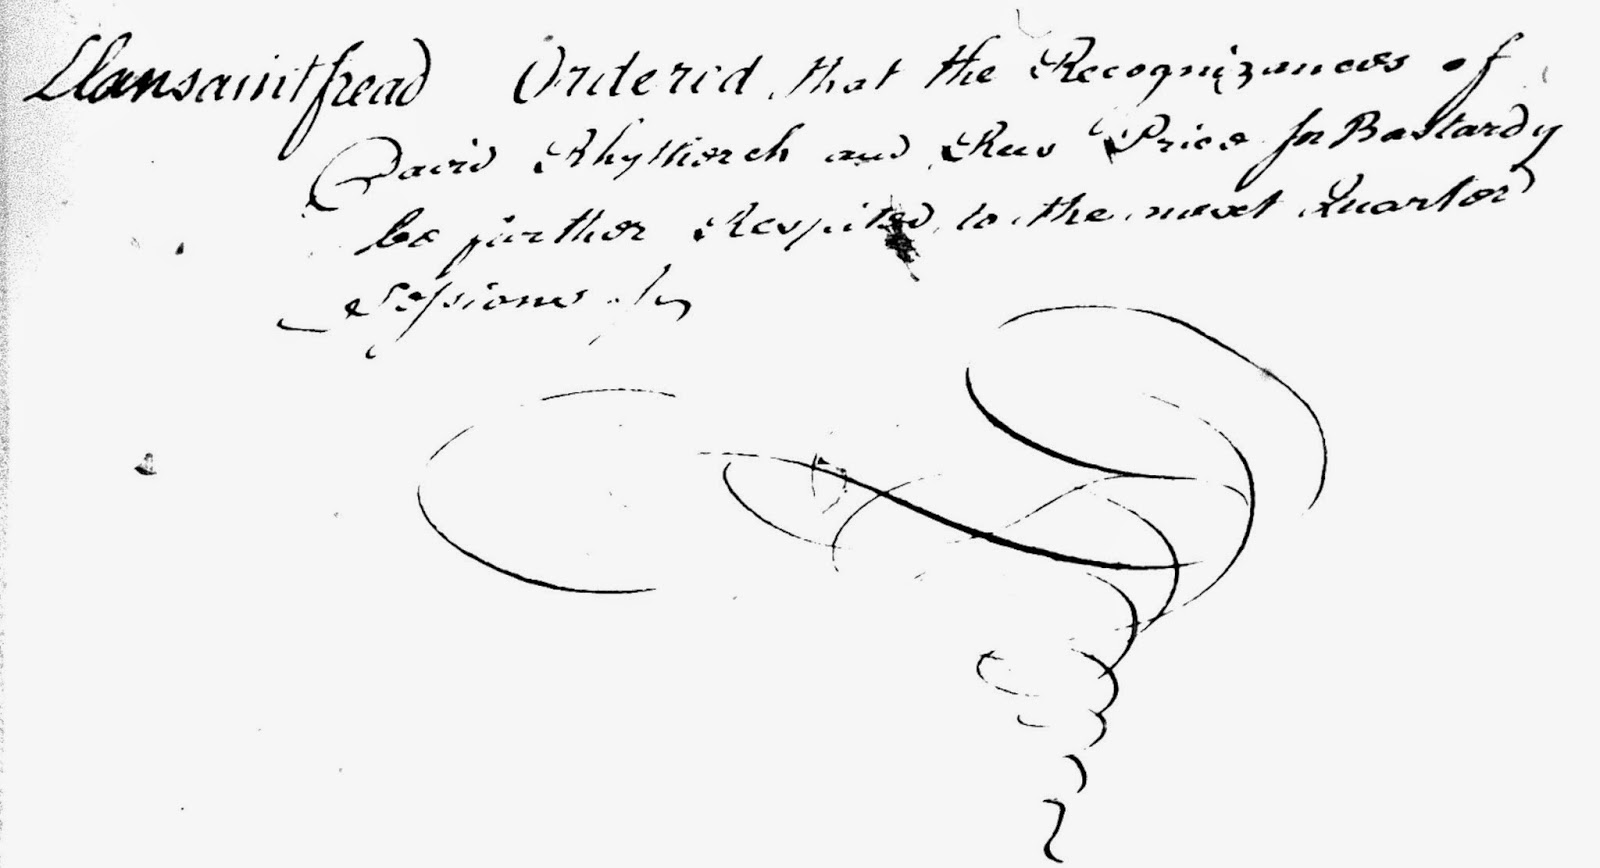 Llansaintfread Ordered that the Recognizances of
David Rhytherch and Rees Price In Bastardy
be further Respited to the next Quarter
Sessions